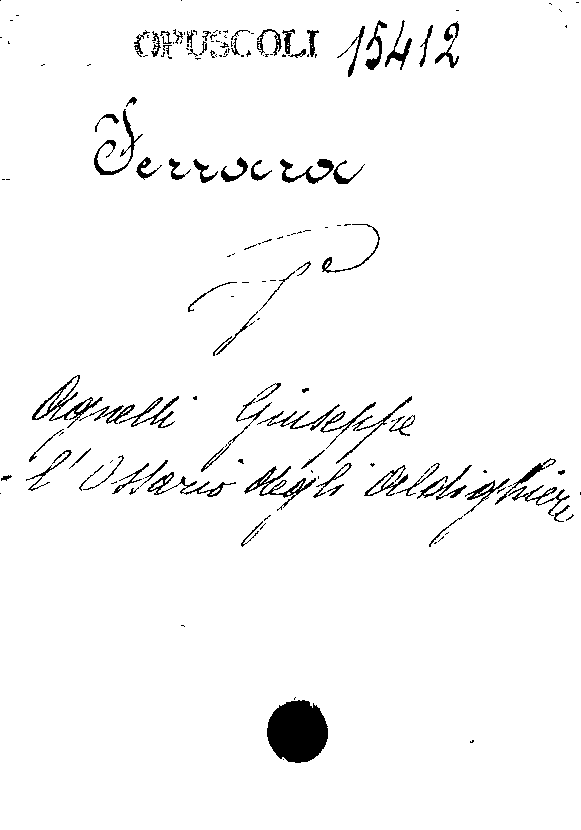 OPUSCOLI 15412
Ferrara
P
Agnelli Giuseppe
- l'Ossario degli Aldighieri